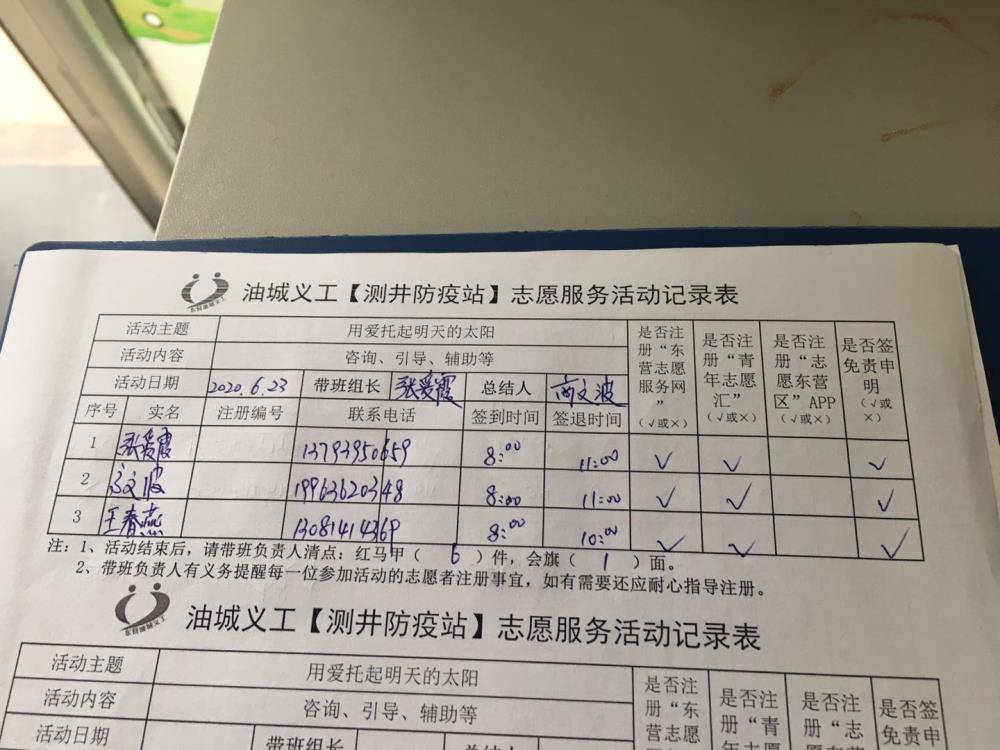 油城义工【测井防疫站】志愿服务活动记录表
活动主题 用爱托起明天的太阳 是否注册“东营志愿服务网”（√或×） 是否注册“青年志愿汇”（√或×） 是否注册“志愿东营区”APP（√或×） 是否签免责申明（√或×）
活动内容 咨询、引导、辅助等
活动日期 2020.6.23 带班组长 张爱霞 总结人 高文波
序号 实名 注册编号 联系电话 签到时间 签退时间
1 张爱霞 13793950659 8:00 11:00 √ √ √
2 高文波 19963620348 8:00 11:00 √ √ √
3 王春燕 13081414369 8:00 10:00 √ √ √
注：1、活动结束后，请带班负责人清点：红马甲（ 6 ）件，会旗（ 1 ）面。
2、带班负责人有义务提醒每一位参加活动的志愿者注册事宜，如有需要还应耐心指导注册。
油城义工【测井防疫站】志愿服务活动记录表
活动主题 用爱托起明天的太阳 是否注册“东营志愿 是否注册“青 是否注册“志 是否签免责申
活动内容 咨询、引导、辅助等
活动日期 带班组长